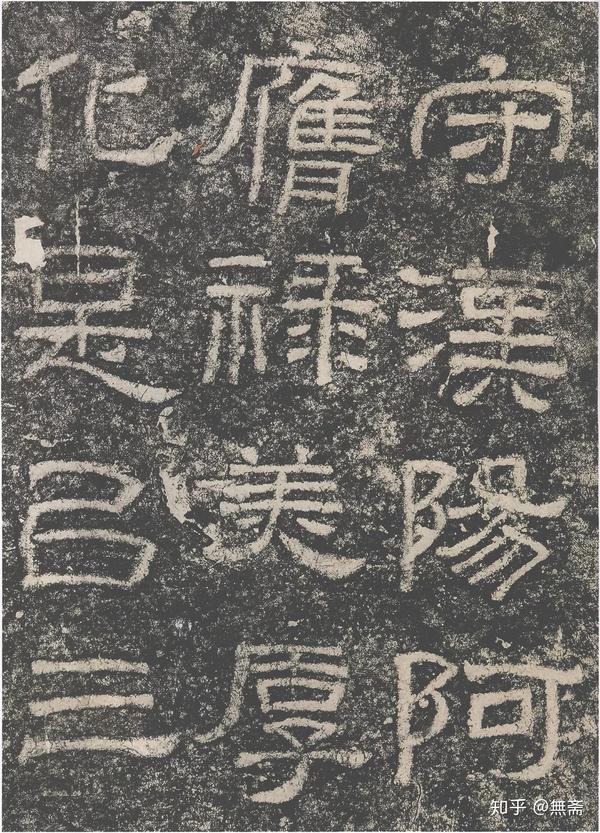 守漢陽阿
膺祿美厚
化是㠯三
知乎 @無斎